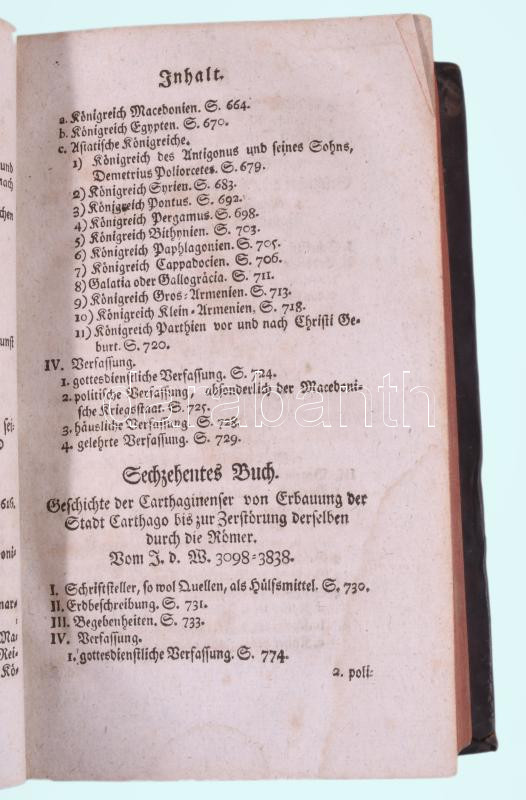 Inhalt.
a. Königreich Macedonien. S. 664.
b. Königreich Egypten. S. 670.
c. Asiatische Königreiche.
1) Königreich des Antigonus und seines Sohns,
Demetrius Poliorcetes. S. 679.
2) Königreich Syrien. S. 683.
3) Königreich Pontus. S. 692.
4) Königreich Pergamus. S. 698.
5) Königreich Bithynien. S. 703.
6) Königreich Paphlagonien. S. 705.
7) Königreich Cappadocien. S. 706.
8) Galatia oder Gallogräcia. S. 711.
9) Königreich Gros-Armenien. S. 713.
10) Königreich Klein-Armenien, S. 718.
11) Königreich Parthien vor und nach Christi Ge-
burt. S. 720.
IV. Verfassung.
1. gottesdienstliche Verfassung. S. 724.
2. politische Verfassung, absonderlich der Macedoni-
sche Kriegsstaat. S. 725.
3. häusliche Verfassung. S. 728.
4. gelehrte Verfassung. S. 729.
Sechzehentes Buch.
Geschichte der Carthaginenser von Erbauung der
Stadt Carthago bis zur Zerstörung derselben
durch die Römer.
Vom J. d. W. 3098-3838.
I. Schriftsteller, so wol Quellen, als Hülfsmittel. S. 730.
II. Erdbeschreibung. S. 731.
III. Begebenheiten. S. 733.
IV. Verfassung.
1. gottesdienstliche Verfassung. S. 774.
2. poli-